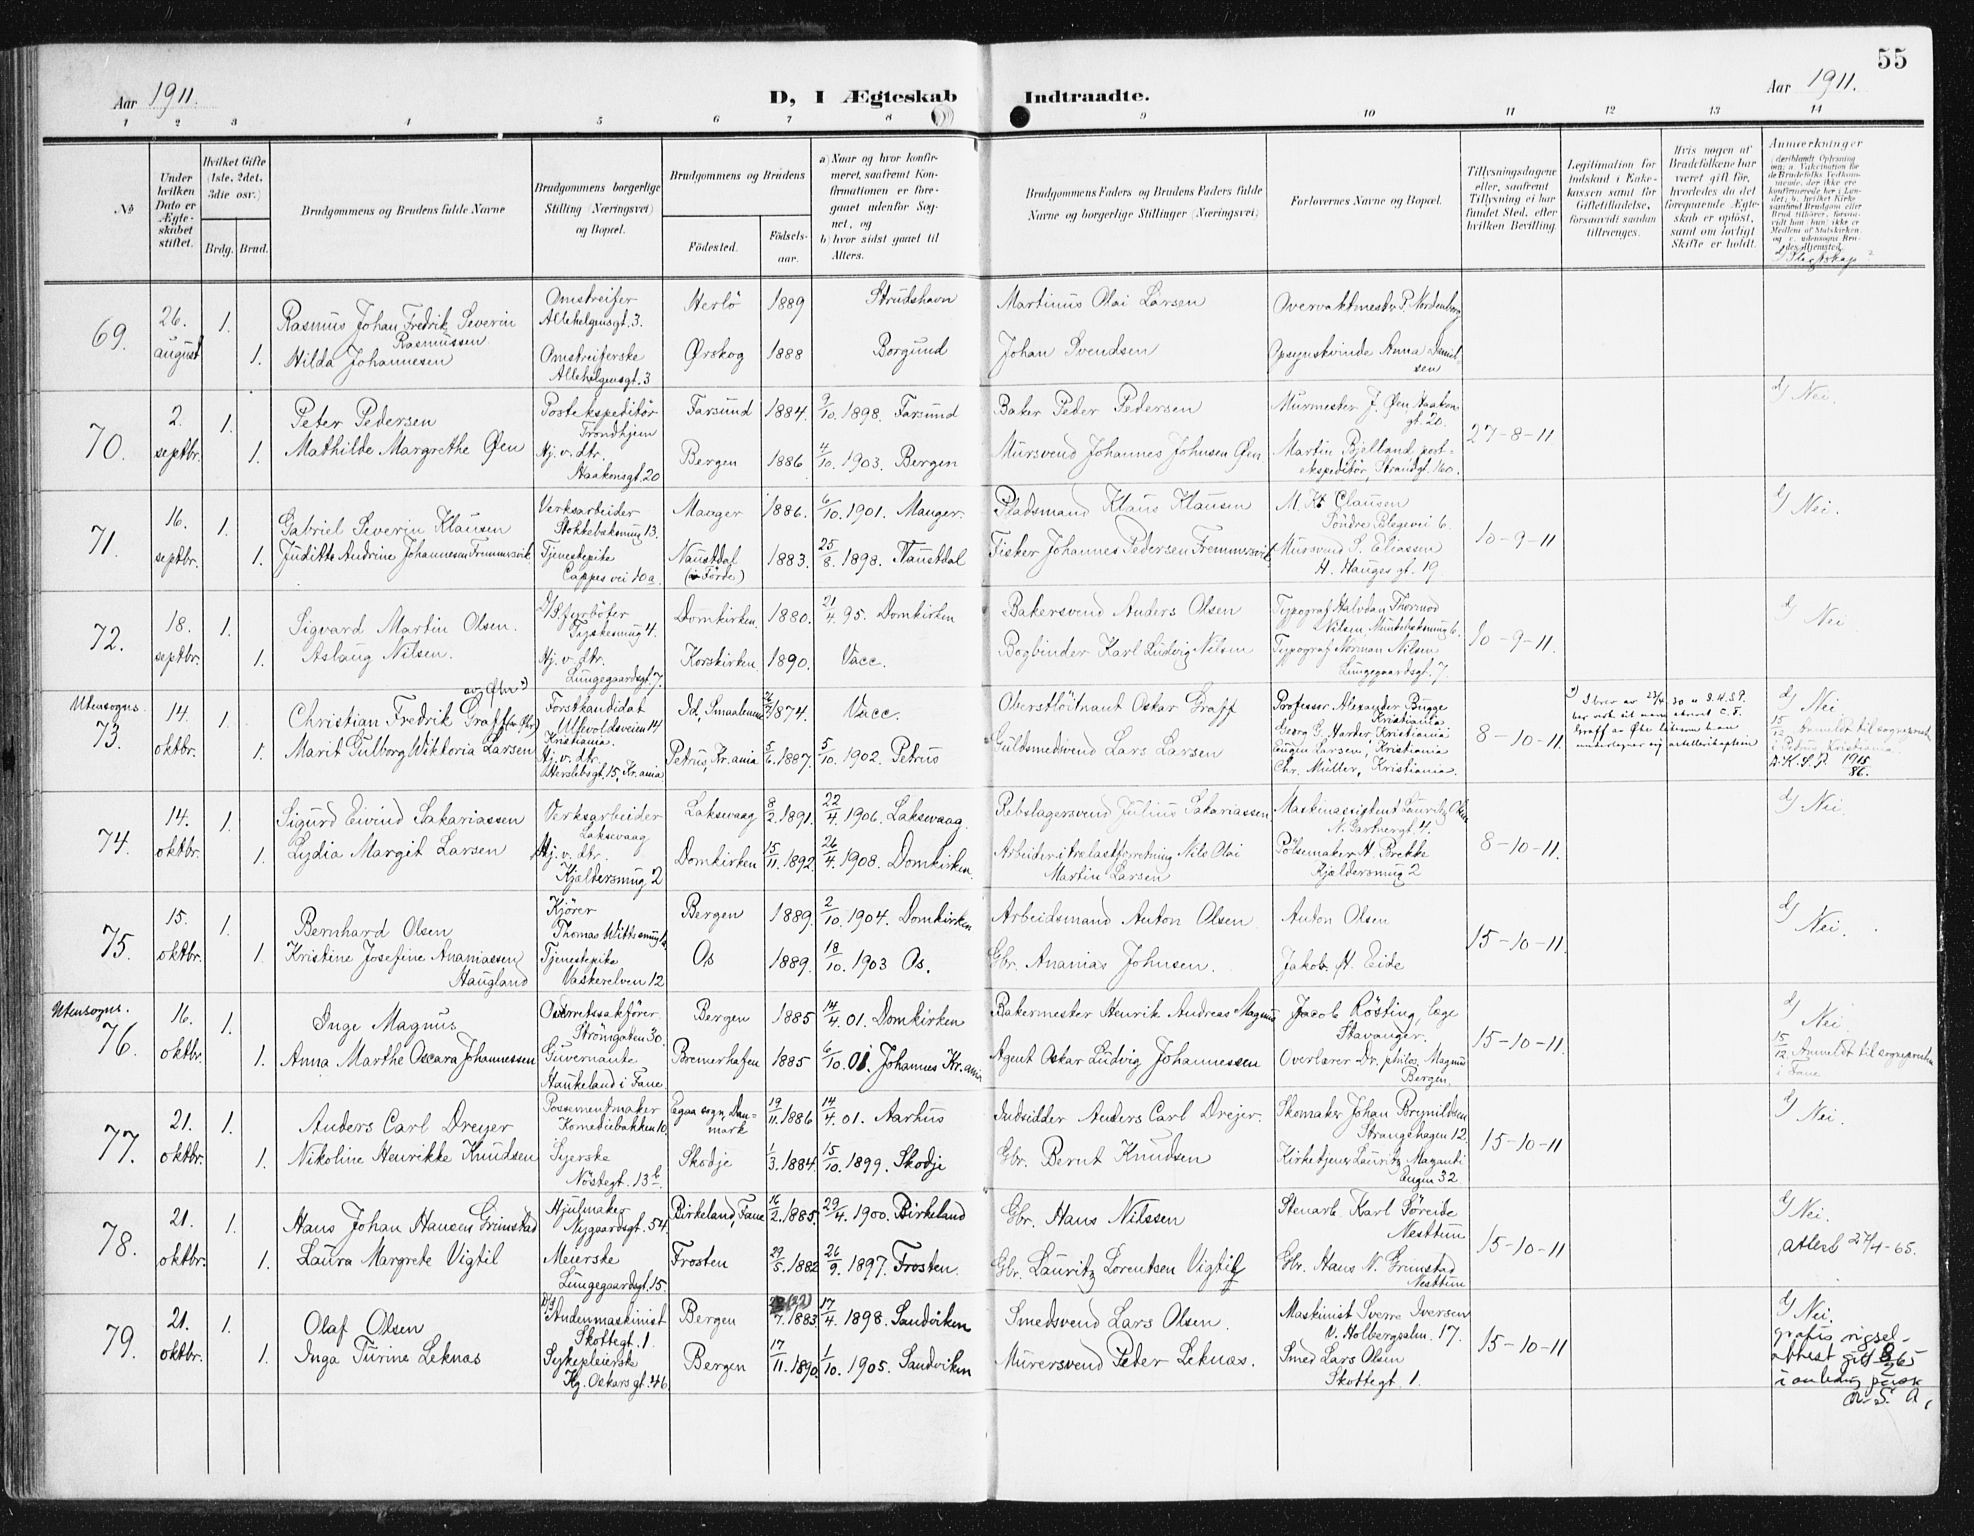 55
Aar 1911.
D, I Ægteskab Indtraadte.
Aar 1911.
1 2 3 4 5 6 7 8 9 10 11 12 13 14
No
Under hvilken Dato er Ægteskabet stiftet.
Hvilket Gifte (1ste, 2det, 3die osv.)
Brdg. Brud.
Brudgommens og Brudens fulde Navne
Brudgommens borgerlige Stilling (Næringsvei) og Bopæl.
Brudgommens og Brudens
Fødested.
Fødselsaar.
a) Naar og hvor konfirmeret, saafremt Konfirmationen er foregaaet udenfor Sognet, og
b) hvor sidst gaaet til Alters.
Brudgommens Faders og Brudens Faders fulde Navne og borgerlige Stillinger (Næringsvei)
Forlovernes Navne og Bopæl.
Tillysningsdagene eller, saafremt Tillysning ei har fundet Sted, efter hvilken Bevilling.
Legitimation for Indskud i Enkekassen samt for Giftetilladelse, forsaavidt saadan tiltrænges.
Hvis nogen af Brudefolkene har været gift før, hvorledes da det foregaaende Ægteskab er opløst, samt om lovligt Skifte er holdt.
Anmerkninger
69. 26. august 1. Rasmus Johan Fredrik Severin Rasmussen Omstreifer Allehelgensgt. 3. Herlö 1889 Strudshavn Martinus Olai Larsen Overvaktmester P. Nordenborg
1. Hilda Johannesen Omstreiferske Allehelgensgt. 3 Ørskog 1888 Borgund Johan Svendsen Opsynskvinde Anna Danielsen
70. 2. septbr. 1. Peter Pedersen Postekspeditör Trondhjem Farsund 1884 9/10. 1898. Farsund Baker Peder Pedersen Murmester J. Øen Haakonsgt. 20. 27-8-11 d/ Nei.
1. Mathilde Margrethe Øen Hj. v. dtr. Haakonsgt. 20 Bergen 1886 4/10. 1903. Bergen Mursvend Johannes Johnsen Øen Martin Bjelland postekspeditör, Strandgt. 160.
71. 16. septbr. 1. Gabriel Severin Klausen Verksarbeider Stokkebaksmug 13. Manger 1886. 6/10. 1901. Manger. Pladsmand Klaus Klausen M. Kr. Clausen Söndre Blegevei 6. 10-9-11 d/ Nei.
1. Judith Andrine Johannesen Fremmersvik Tjenestepike Cappes vei 10a. Naustdal (i Förde) 1883. 25/8. 1898. Naustdal Fisker Johannes Pedersen Fremmersvik Mursvend S. Eliassen H. Hauges gt. 19.
72. 18. septbr. 1. Sigvard Martin Olsen. D/S fyrböter Tyskesmug 4. Domkirken 1880. 21/4. 95. Domkirken Bakersvend Anders Olsen Typograf Halvdan Thormod Nilsen, Munkebaksmug 6. 10-9-11. d/ Nei
1. Aslaug Nilsen. Hj. v. dtr. Lungegaardsgt. 7. Korskirken 1890. Vacc. Bogbinder Karl Ludvig Nilsen Typograf Norman Nilsen Lungegaardsgt. 7
Utensogns. 73. 14. oktbr. 1. Christian Fredrik Graff (av Øbr) Forstkandidat Ullevoldsveien 14 Kristiania. Id, Smaalenene 1874. Vacc. Oberstlöitnant Oskar Graff Professor Alexander Bugge Kristiania Georg G. Harder, Kristiania 8-10-11 d/ Nei
1. Marit Gulborg Wiktoria Larsen Hj. v. dtr. Herslebsgt. 15, Kr.ania Petrus, Kr.ania 5/6. 1887. 5/10. 1902. Petrus Guldsmedsvend Lars Larsen Eugen Larsen, Kristiania Chr. Müller, Kristiania. 15/12 Anmeldt til sognepresten i Petrus, Kristiania.
74. 14. oktbr. 1. Sigurd Eivind Sakariassen Verksarbeider Laksevaag Laksevaag 8/2. 1891. 22/4. 1906. Laksevaag. Rebslagersvend Julius Sakariassen Maskinassistent Lauritz Olsen N. Gartnergt. 4. 8-10-11. d/ Nei.
1. Lydia Margit Larsen Hj. v. dtr. Kjældersmug 2 Domkirken 15/11. 1892. 26/4. 1908. Domkirken. Arbeider i trelastforretning Nils Olai Martin Larsen Pölsemaker H. Brekke Kjældersmug 2
75. 15. oktbr. 1. Bernhard Olsen Kjörer Thomas Wittsmug Bergen 1889. 2/10. 1904. Domkirken Arbeidsmand Anton Olsen Anton Olsen 15-10-11. d/ Nei.
1. Kristine Josefine Ananiassen Haugland Tjenestepike Vaskerelven 12 Os 1889. 18/10. 1903 Os. Gbr. Ananias Johnsen. Jakob H. Eide
Utensogns. 76. 16. oktbr. 1. Inge Magnus Overretssakförer. Strömgaten 30. Bergen 1885 14/4. 01. Domkirken Bakermester Henrik Andreas Magnus Jacob Rösting, læge Stavanger. 15-10-11. d/ Nei.
1. Anna Marthe Oscara Johannessen Guvernante Haukeland i Fane Bremerhafen 1885 6/10. 01. Johannes Kr.ania Agent Oskar Ludvig Johannessen Overlærer Dr. philos. Magnus Bergen. 15/12. Anmeldt til sognepresten i Fane
77. 21. oktbr. 1. Anders Carl Dreyer Possementmaker Komediebakken 10. Egaa sogn, Danmark 19/11. 1886 14/4. 01. Aarhus Indsidder Anders Carl Drejer. Skomaker Johan Brynildsen Strangehagen 12. 15-10-11 d/ Nei.
1. Nikoline Henrikke Knudsen Syerske Nöstegt. 13b. Skodje 1/3. 1884. 15/10. 1899. Skodje Gbr. Bernt Knudsen Kirketjener Lauritz Maganti Engen 32
78. 21. oktbr. 1. Hans Johan Hansen Grimstad Hjulmaker Nygaardsgt. 54. Birkeland, Fane 16/2. 1885. 29/4. 1900. Birkeland Gbr. Hans Nilssen Stenarb. Karl Söreide Nesttun 15-10-11 d/ Nei.
1. Laura Margrete Vigtil Meierske Lungegaardsgt. 15. Frosten 29/5. 1882 26/9. 1897. Frosten. Gbr. Lauritz Lorentsen Vigtil Gbr. Hans N. Grimstad Nesttun attest 27/4-65.
79. 21. oktbr. 1. Olaf Olsen D/S Andenmaskinist Skottegt. 1 Bergen 1883 17/4. 1898. Sandviken Smedsvend Lars Olsen. Maskinist Sverre Iversen v. Holbergsalm. 17. 15-10-11 d/ Nei.
1. Inga Turine Leknæs Sykepleierske Kg. Oskars gt. 46 Bergen 17/11. 1890. 1/10. 1905. Sandviken Murersvend Peter Leknæs. Smed Lars Olsen Skottegt. 1.